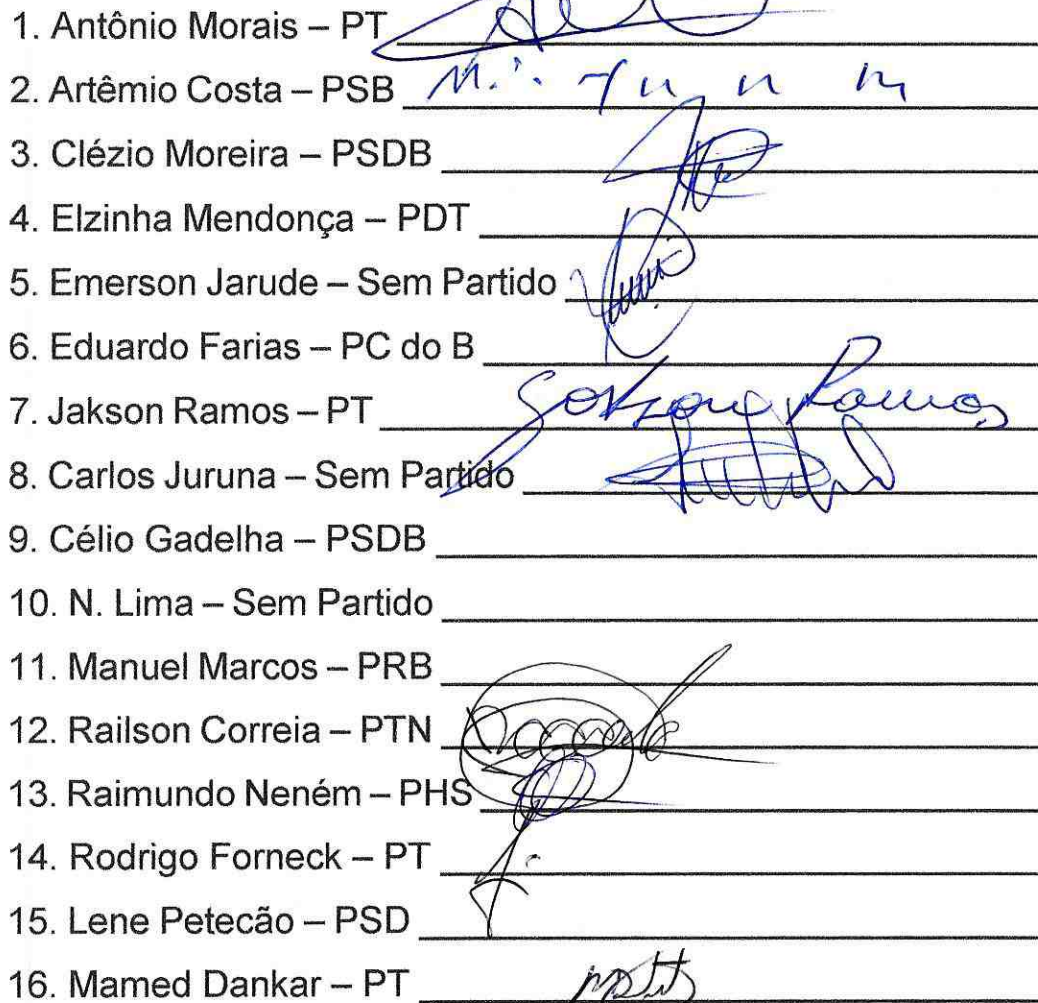 1. Antônio Morais – PT
2. Artêmio Costa – PSB
3. Clézio Moreira – PSDB
4. Elzinha Mendonça – PDT
5. Emerson Jarude – Sem Partido
6. Eduardo Farias – PC do B
7. Jakson Ramos – PT Ramos
8. Carlos Juruna – Sem Partido
9. Célio Gadelha – PSDB
10. N. Lima – Sem Partido
11. Manuel Marcos – PRB
12. Railson Correia – PTN
13. Raimundo Neném – PHS
14. Rodrigo Forneck – PT
15. Lene Petecão – PSD
16. Mamed Dankar – PT